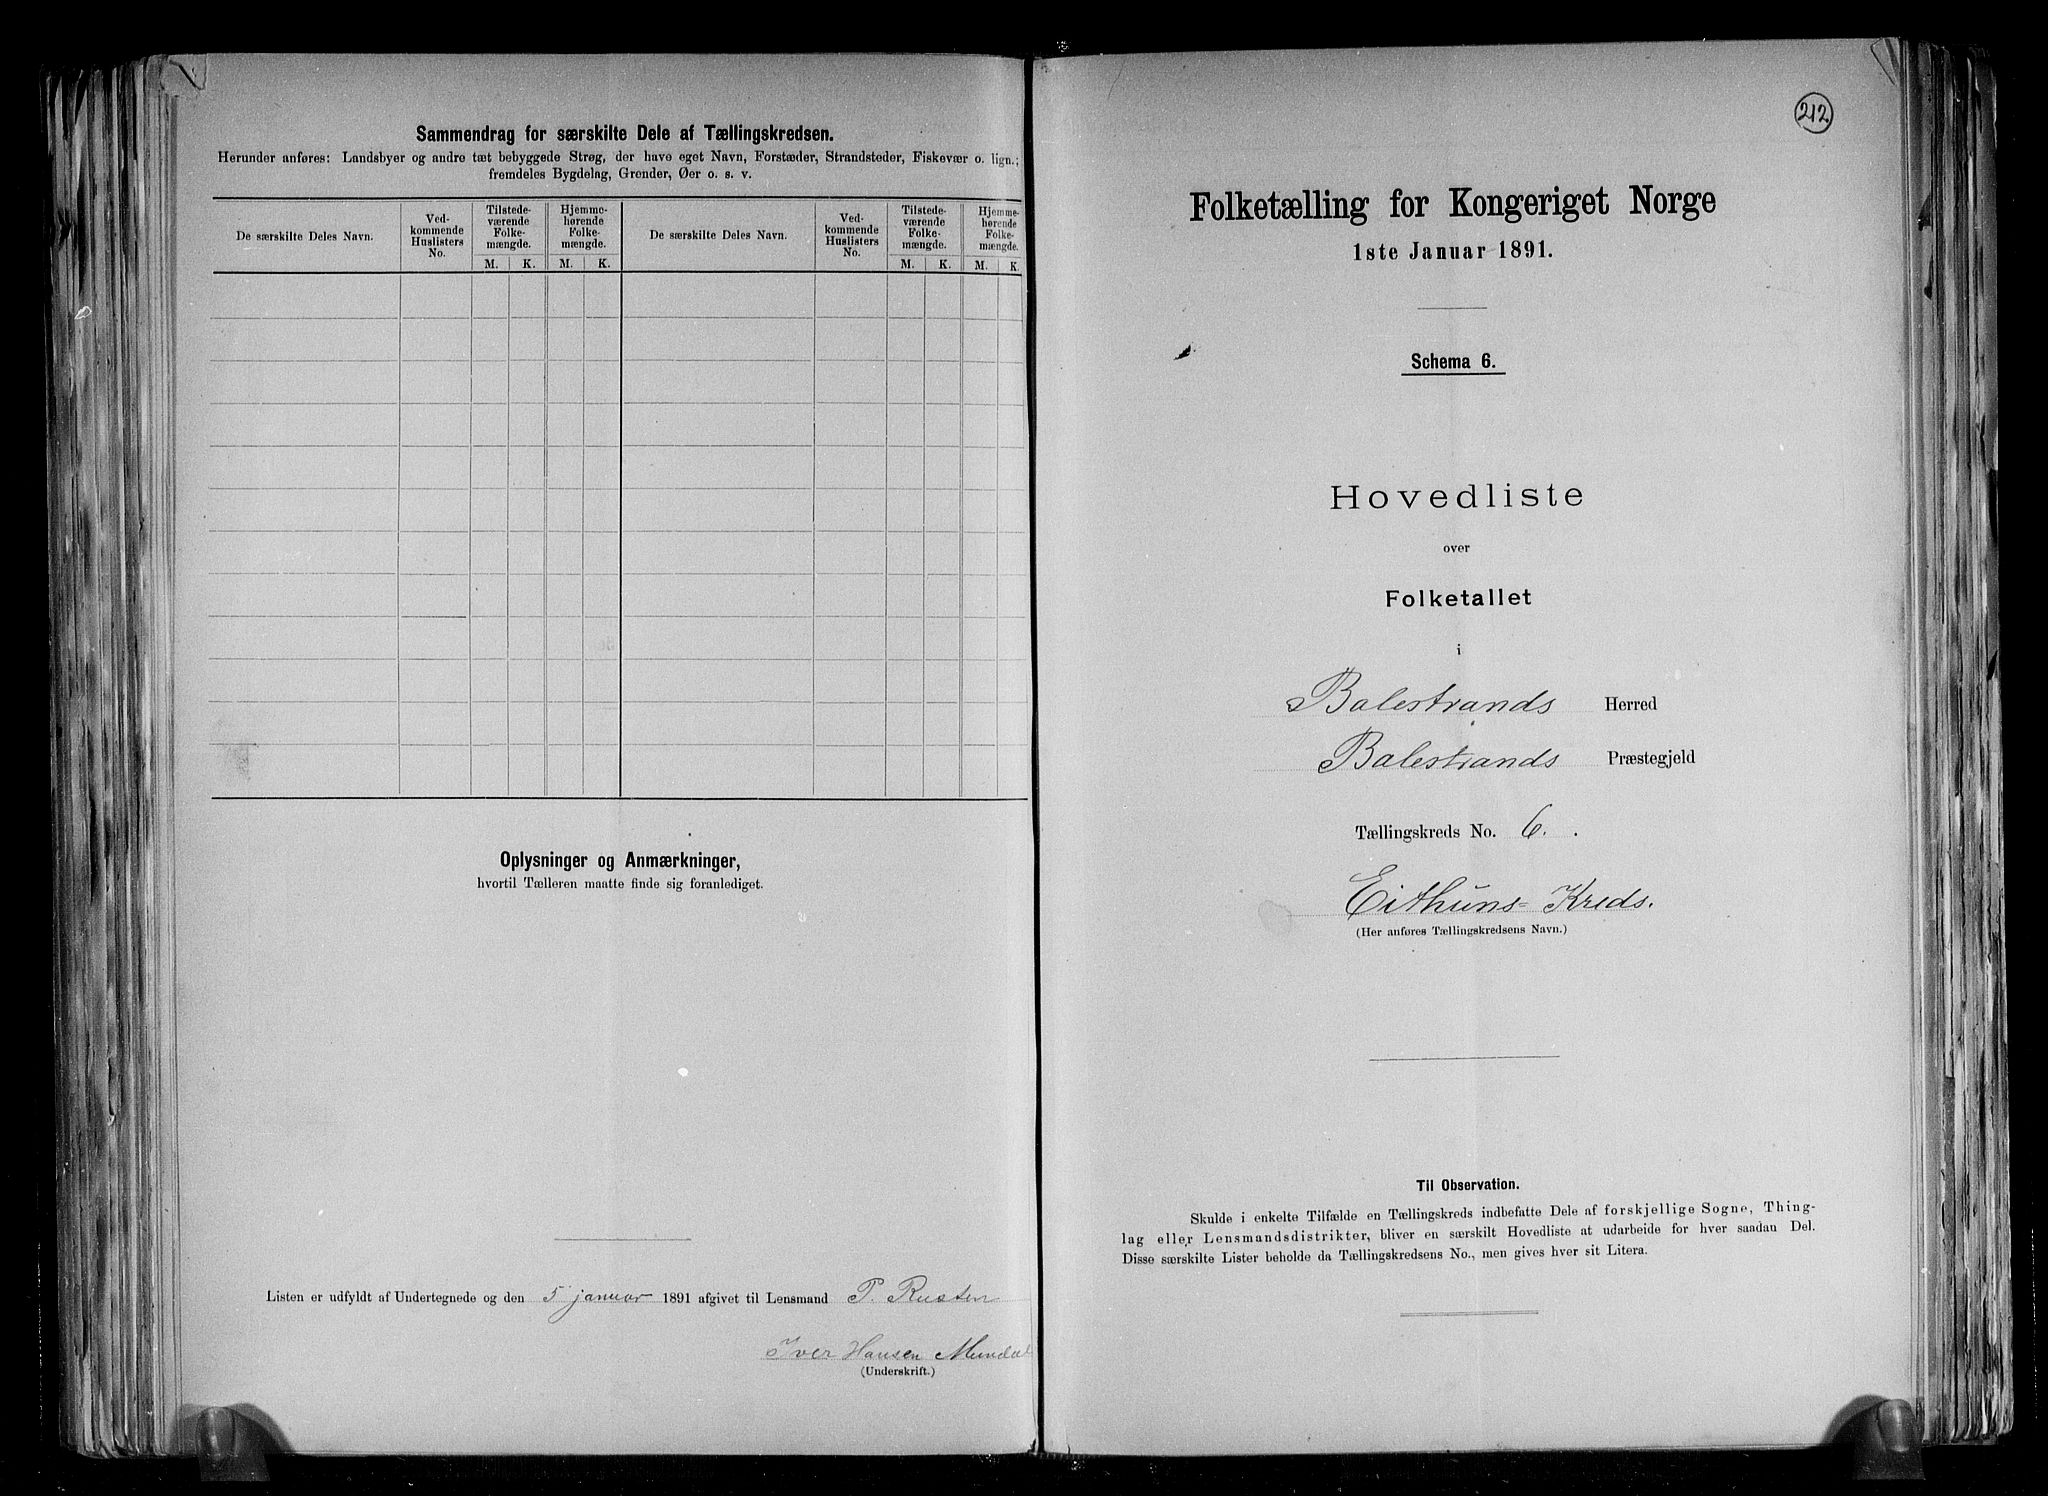 Sammendrag for særskilte Dele af Tællingskredsen.
Herunder anføres: Landsbyer og andre tæt bebyggede Strøg, der have eget Navn, Forstæder, Strandsteder, Fiskevær o. lign.;
fremdeles Bygdelag, Grender, Øer o. s. v.
De særskilte Deles Navn.
Ved-
kommende
Huslisters
No.
Tilstede-
værende
Folke-
mængde.
Hjemme-
hørende
Folke-
mængde.
De særskilte Deles Navn.
Ved-
kommende
Huslisters
No.
Tilstede-
værende
Folke-
mængde.
Hjemme-
hørende
Folke-
mængde.
M. K. M. K. M. K. M. K.
Oplysninger og Anmærkninger,
hvortil Tælleren maatte finde sig foranlediget.
Listen er udfyldt af Undertegnede og den 5 januar 1891 afgivet til Lensmand P. Rusten
Iver Hansen Mundal
(Underskrift.)
212
Folketælling for Kongeriget Norge
1ste Januar 1891.
Schema 6.
Hovedliste
over
Folketallet
i
Balestrands Herred
Balestrands Præstegjeld
Tællingskreds No. 6.
Eithuns-Kreds.
(Her anføres Tællingskredsens Navn.)
Til Observation.
Skulde i enkelte Tilfælde en Tællingskreds indbefatte Dele af forskjellige Sogne, Thing-
lag eller Lensmandsdistrikter, bliver en særskilt Hovedliste at udarbeide for hver saadan Del.
Disse særskilte Lister beholde da Tællingskredsens No., men gives hver sit Litera.